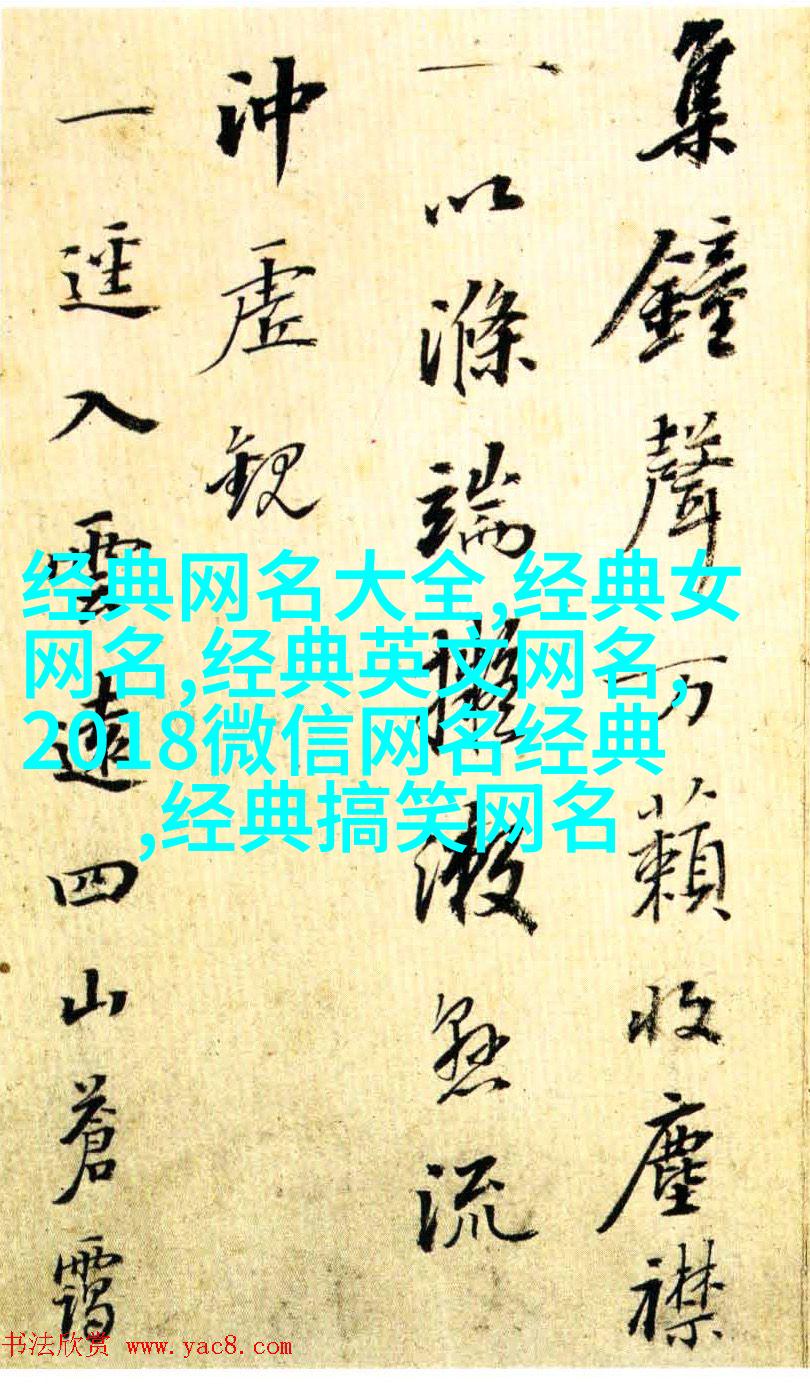 集鐘聲万籟收塵襟
一以滌端擬漱懸流
沖虛觀
一逕入雲遠四山蒼靄
经典网名大全,经典女
网名,经典英文网名,
2018微信网名经典
,经典搞笑网名
书法欣赏 www.yac8.com